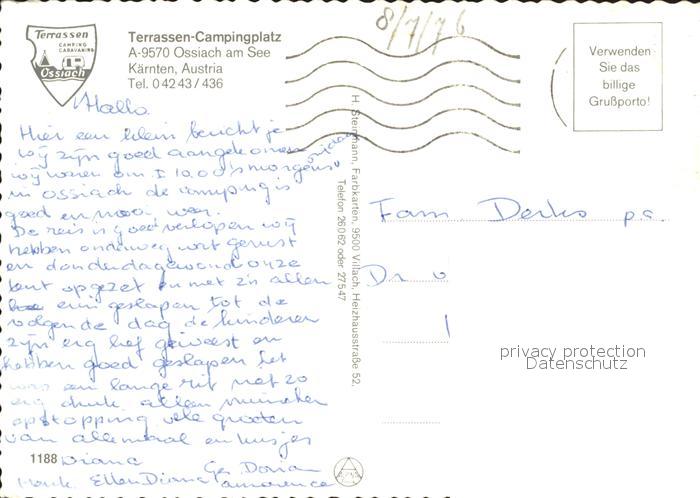 Terrassen
CAMPING
CARAVANING
Ossiach
Terrassen-Campingplatz
A-9570 Ossiach am See
Kärnten, Austria
Tel. 0 42 43 / 436
8/7/76
Verwenden
Sie das
billige
Grußporto!
Hallo.
Hier een klein bericht je
wij zijn goed aangekomen
wij waren om 10.00's morgens
in ossiach de camping is
goed en mooi weer.
De reis is goed verlopen wij
hebben onderweg wat gerust
en donderdagavond onze
tent opgezet en met z'n allen
een geslapen tot de
volgende dag de kinderen
zijn erg lief geweest en
hebben goed geslapen het
was een lange rit met zo
erg druk alleen
opstopping vele groeten
van allemaal en kusjes
Diana
Ellen Diana
Ger Dorian
H. Steinmann, Farbkarten, 9500 Villach, Heizhausstraße 52,
Telefon 26062 oder 27547
Fam. Derks
1188
privacy protection
Datenschutz